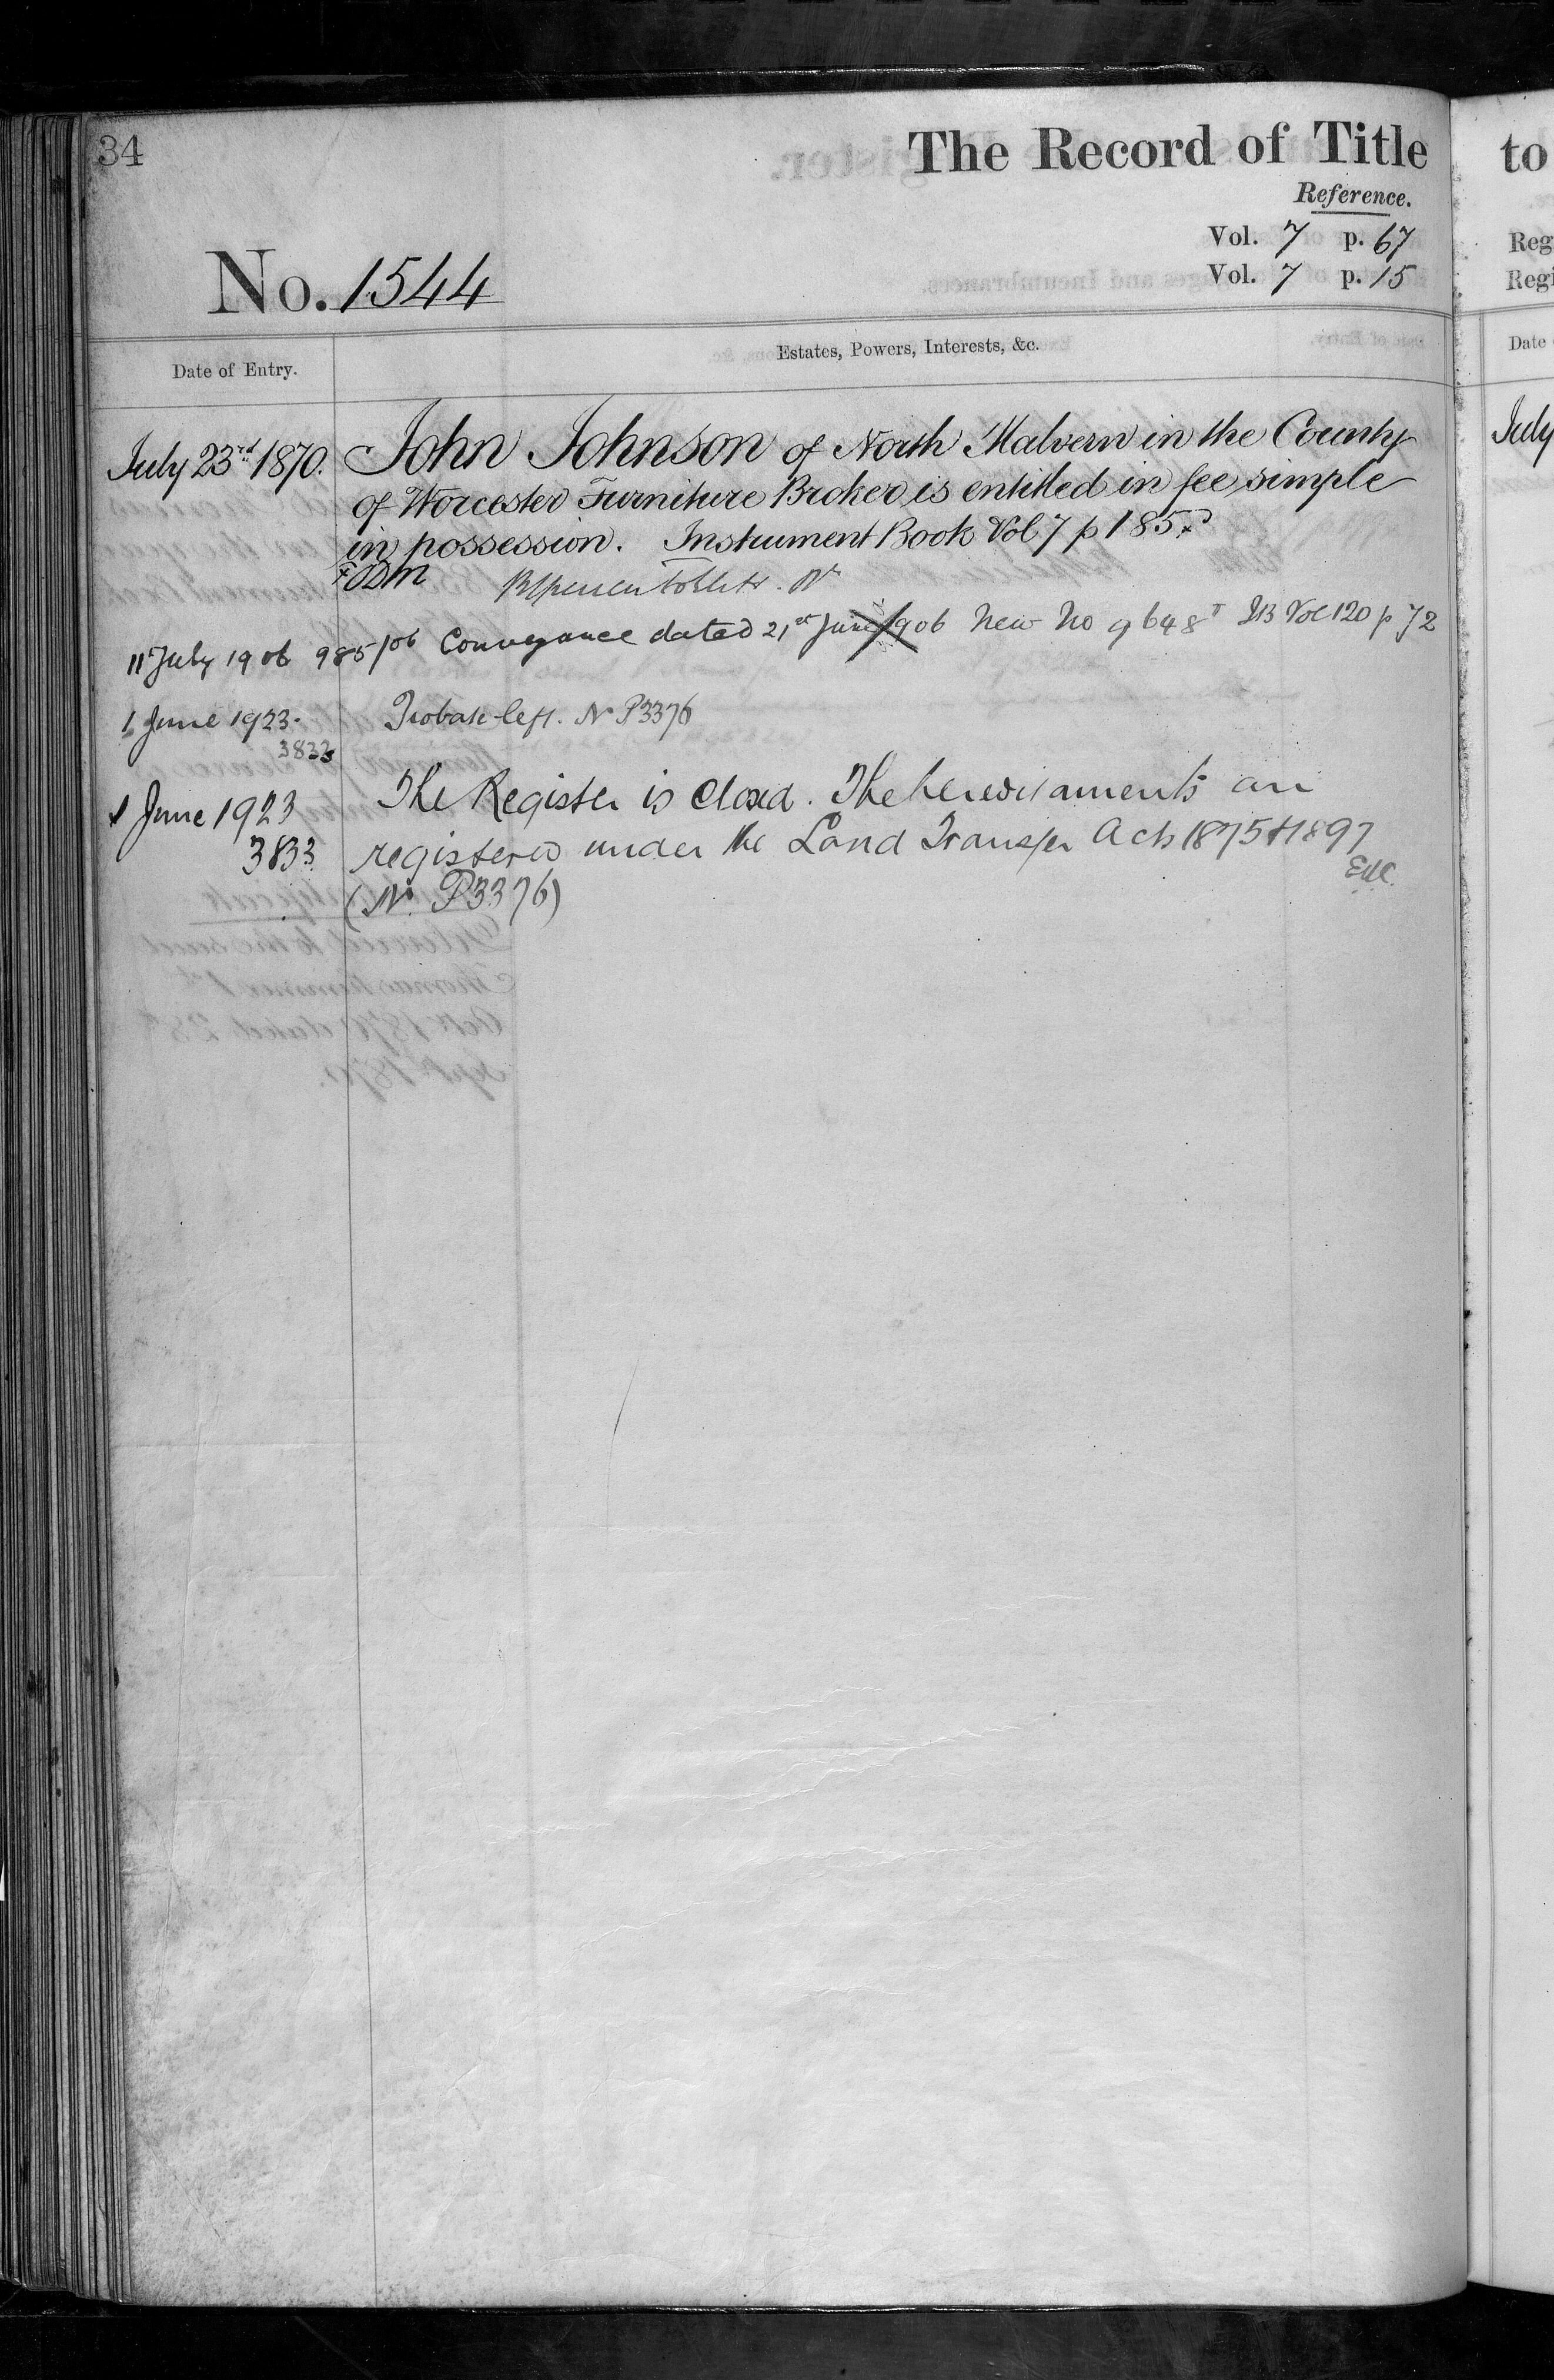 34
The Record of Title
Reference.
Vol. 7 p. 67
Vol. 7 p. 15
No. 1544
Date of Entry.
Estates, Powers, Interests, &c.
July 23rd 1870. John Johnson of North Malvern in the County
of Worcester Furniture Broker is entitled in fee simple
in possession. Instrument Book Vol 7 p 185.
11 July 1906 985/06 Conveyance dated 21st June 1906 New No 9648 T IB Vol 120 p 72
1 June 1923. Probate left. No P3376
3833
1 June 1923 The Register is closed. The hereditaments are
3833 registered under the Land Transfer Acts 1875 & 1897
(No. P3376)
to
Reg
Regi
Date
July